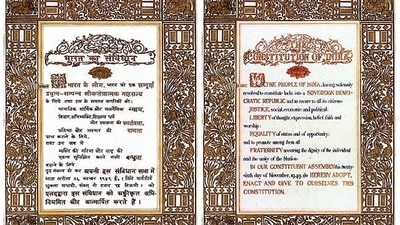 भारत का संविधान
भारत के लोग, भारत को एक सम्पूर्ण
प्रभुत्व-सम्पन्न लोकतंत्रात्मक गणराज्य
के लिये, तथा उस के समस्त नागरिकों को:
सामाजिक, आर्थिक और राजनैतिक न्याय,
विचार, अभिव्यक्ति, विश्वास, धर्म
और उपासना की स्वतंत्रता,
प्रतिष्ठा और अवसर की समता
प्राप्त कराने के लिये,
तथा उन सब में
व्यक्ति की गरिमा और राष्ट्र की
एकता सुनिश्चित करने वाली बन्धुता
बढ़ाने के लिये
दृढ़ संकल्प हो कर अपनी इस संविधान सभा में
आज तारीख २६ नवम्बर १९४९ ई० (मिति मार्गशीर्ष
शुक्ला सप्तमी, संवत् दो हजार छह विक्रमी) को
एतद्द्वारा इस संविधान को अंगीकृत, अधि-
नियमित और आत्मार्पित करते हैं।
THE
CONSTITUTION OF INDIA
WE, THE PEOPLE OF INDIA, having solemnly
resolved to constitute India into a SOVEREIGN DEMO-
CRATIC REPUBLIC and to secure to all its citizens:
JUSTICE, social, economic and political;
LIBERTY of thought, expression, belief, faith and
worship;
EQUALITY of status and of opportunity;
and to promote among them all
FRATERNITY assuring the dignity of the individual
and the unity of the Nation;
IN OUR CONSTITUENT ASSEMBLY this twenty-
sixth day of November, 1949, do HEREBY ADOPT,
ENACT AND GIVE TO OURSELVES THIS
CONSTITUTION.